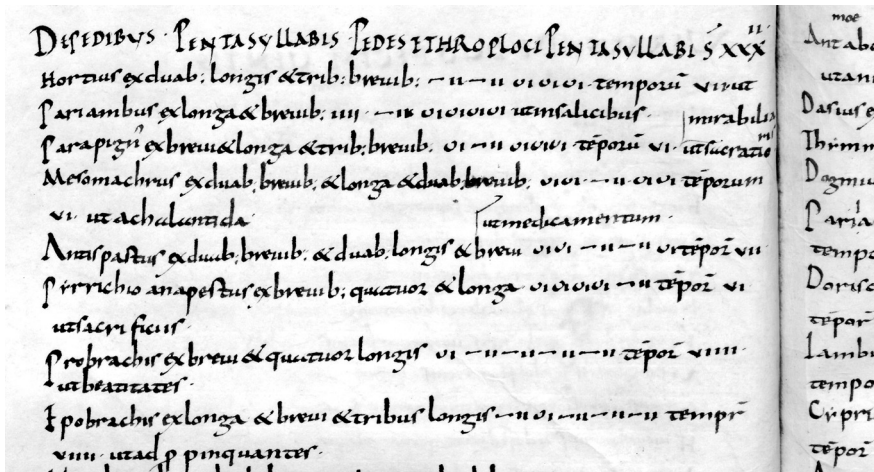 DEPEDIBUS · PENTASYLLABIS PEDES ETHROPLOCI PENTASYLLABI S̄ XXXII
Hortius exduab: longis &trib: breuib: – ıı – ıı oı oı oı temporū vı ut
Pariambus exlonga& breuib: ıııı · – ıı oı oı oı oı utinsalicibus · mirabilia
Parapign̄ exbreui&longa &trib: breuib: oı – ıı oı oı oı tēporū vı · utsucratio
Mesomachrus exduab: breuib: &longa &duab: breuib: oı oı – ıı oı oı tēporum
vı · ut
utmedicamentum ·
Antispastus exduab: breuib: &duab: longis & breui oı oı – ıı – ıı oı tēpor̄ vıı
Pyrrichio anapestus exbreuib: quattuor & longa oı oı oı oı – ıı tēpor̄ vı
utsacrificiis ·
Probrachis exbreui & quattuor longis oı – ıı – ıı – ıı – ıı tēpor̄ vıııı ·
utbeatitates ·
Epobrachis exlonga & breui &tribus longis – ıı oı – ıı – ıı – ıı tempr̄
vıııı · utad p pinquantes ·
moe
Ant abo
utani
Dasius e
Thymm
Dogmu
Paria
tempo
Dorisc
tēpor̄
Iambu
tempo
Cypri
tēpor̄